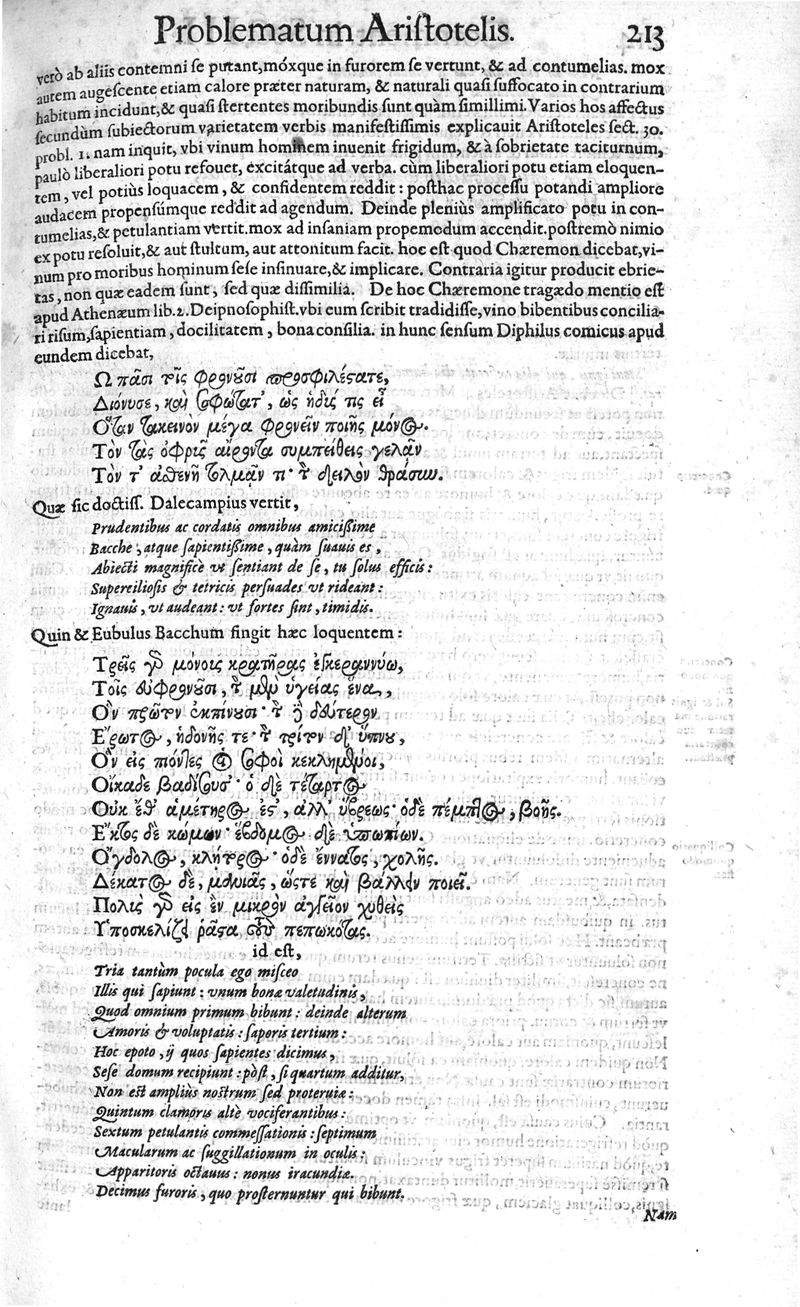 Problematum Aristotelis. 213
verò ab aliis contemni se putant, móxque in furorem se vertunt, & ad contumelias. mox
autem augescente etiam calore præter naturam, & naturali quasi suffocato in contrarium
habitum incidunt, & quasi stertentes moribundis sunt quàm simillimi. Varios hos affectus
secundùm subiectorum varietatem verbis manifestissimis explicauit Aristoteles sect. 30.
probl. 1. nam inquit, vbi vinum hominem inuenit frigidum, & à sobrietate taciturnum,
paulò liberaliori potu refouet, excitátque ad verba. cùm liberaliori potu etiam eloquen-
tem, vel potiùs loquacem, & confidentem reddit: posthac processu potandi ampliore
audacem propensúmque reddit ad agendum. Deinde pleniùs amplificato potu in con-
tumelias, & petulantiam vertit. mox ad insaniam propemodum accendit. postremò nimio
ex potu resoluit, & aut stultum, aut attonitum facit. hoc est quod Chæremon dicebat, vi-
num pro moribus hominum sese insinuare, & implicare. Contraria igitur producit ebrie-
tas, non quæ eadem sunt, sed quæ dissimilia. De hoc Chæremone tragædo mentio est
apud Athenæum lib. 2. Deipnosophist. vbi eum scribit tradidisse, vino bibentibus concilia-
ri risum, sapientiam, docilitatem, bona consilia. in hunc sensum Diphilus comicus apud
eundem dicebat,
Ω πᾶσι τοῖς φρονοῦσι προσφιλέστατε,
Διόνυσε, καὶ σοφώτατ', ὡς ἡδύς τις εἶ
Ὅταν ταπεινὸν μέγα φρονεῖν ποιῇς μόνος.
Τὸν τὰς ὀφρῦς αἴροντα συμπείθεις γελᾶν
Τὸν τ' ἀσθενῆ τολμᾶν τι· τὸν δειλὸν θρασύν.
Quæ sic doctiss. Dalecampius vertit,
Prudentibus ac cordatis omnibus amicißime
Bacche, atque sapientißime, quàm suauis es,
Abiecti magnificè vt sentiant de se, tu solus efficis:
Superciliosis & tetricis persuades vt rideant:
Ignauis, vt audeant: vt fortes sint, timidis.
Quin & Eubulus Bacchum fingit hæc loquentem:
Τρεῖς γὰρ μόνοις κρατῆρας ἐγκεραννύω,
Τοῖς εὐφρονοῦσι, τὸν μὲν ὑγείας ἕνα,
Ὃν πρῶτον ἐκπίνουσι· τὸν δὲ δεύτερον
Ἔρωτος, ἡδονῆς τε· τὸν τρίτον δ' ὕπνου,
Ὃν εἰς πιόντες οἱ σοφοὶ κεκλημένοι,
Οἴκαδε βαδίζουσ'· ὁ δὲ τέταρτος
Οὐκ ἔθ' ἡμέτερος ἐστ', ἀλλ' ὕβρεως· ὁ δὲ πέμπτος, βοῆς.
Ἕκτος δὲ κώμων· ἕβδομος δὲ ὑπωπίων.
Ὄγδοος, κλήτορος· ὁ δὲ ἔννατος, χολῆς.
Δέκατος δὲ, μανίας, ὥστε καὶ βάλλειν ποιεῖ.
Πολὺς γὰρ εἰς ἓν μικρὸν ἀγγεῖον χυθεὶς
Ὑποσκελίζει ῥᾷστα τοὺς πεπωκότας.
id est,
Tria tantùm pocula ego misceo
Illis qui sapiunt: vnum bonæ valetudinis,
Quod omnium primum bibunt: deinde alterum
Amoris & voluptatis: saporis tertium:
Hoc epoto, ij quos sapientes dicimus,
Sese domum recipiunt: pòst, si quartum additur,
Non est ampliùs nostrum sed proteruiæ:
Quintum clamoris altè vociferantibus:
Sextum petulantis commessationis: septimum
Macularum ac suggillationum in oculis:
Apparitoris octauus: nonus iracundiæ.
Decimus furoris, quo prosternuntur qui bibunt.
Nam